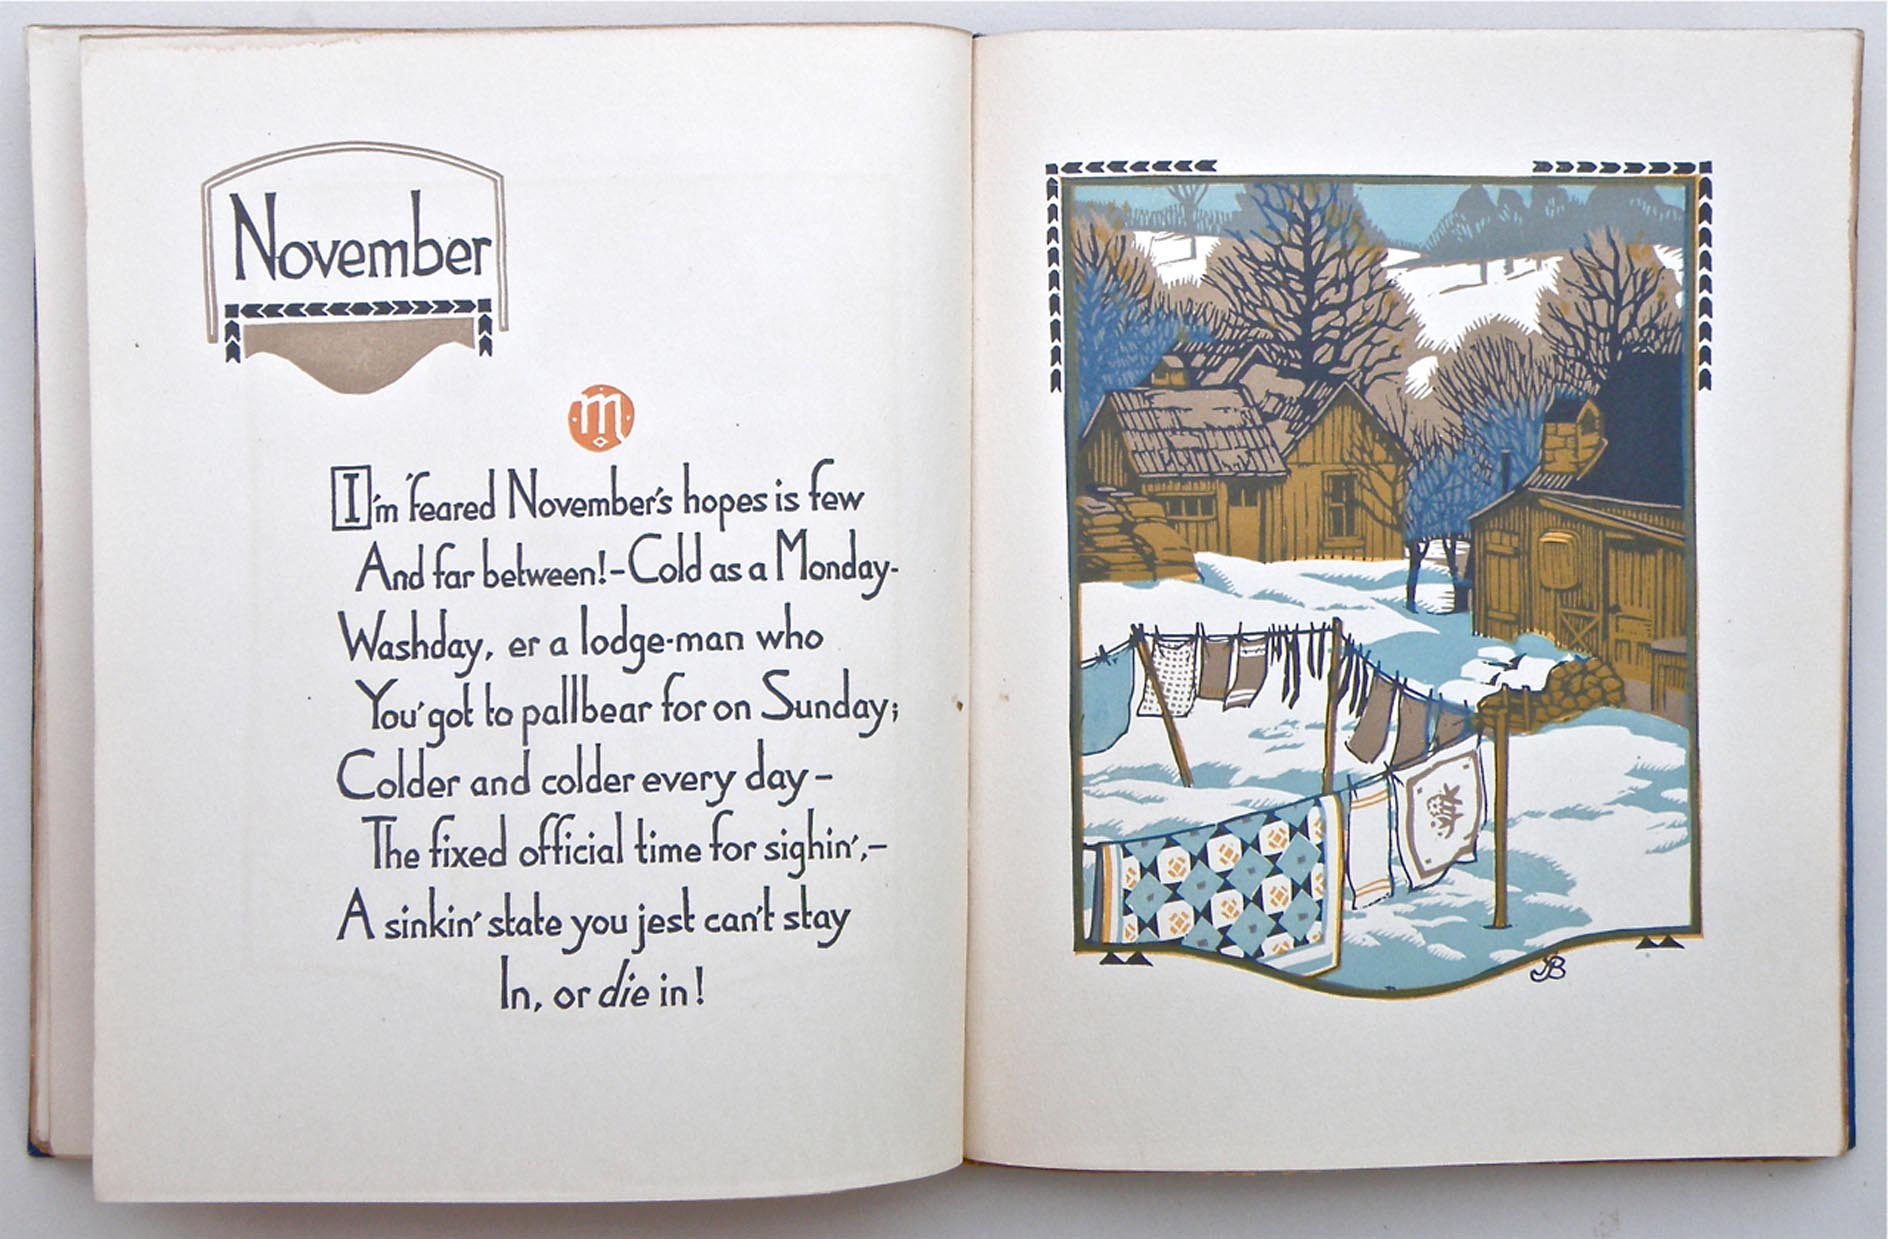 November
m
I'm 'feared November's hopes is few
And far between!–Cold as a Monday-
Washday, er a lodge-man who
You' got to pallbear for on Sunday;
Colder and colder every day –
The fixed official time for sighin',–
A sinkin' state you jest can't stay
In, or die in!
JB